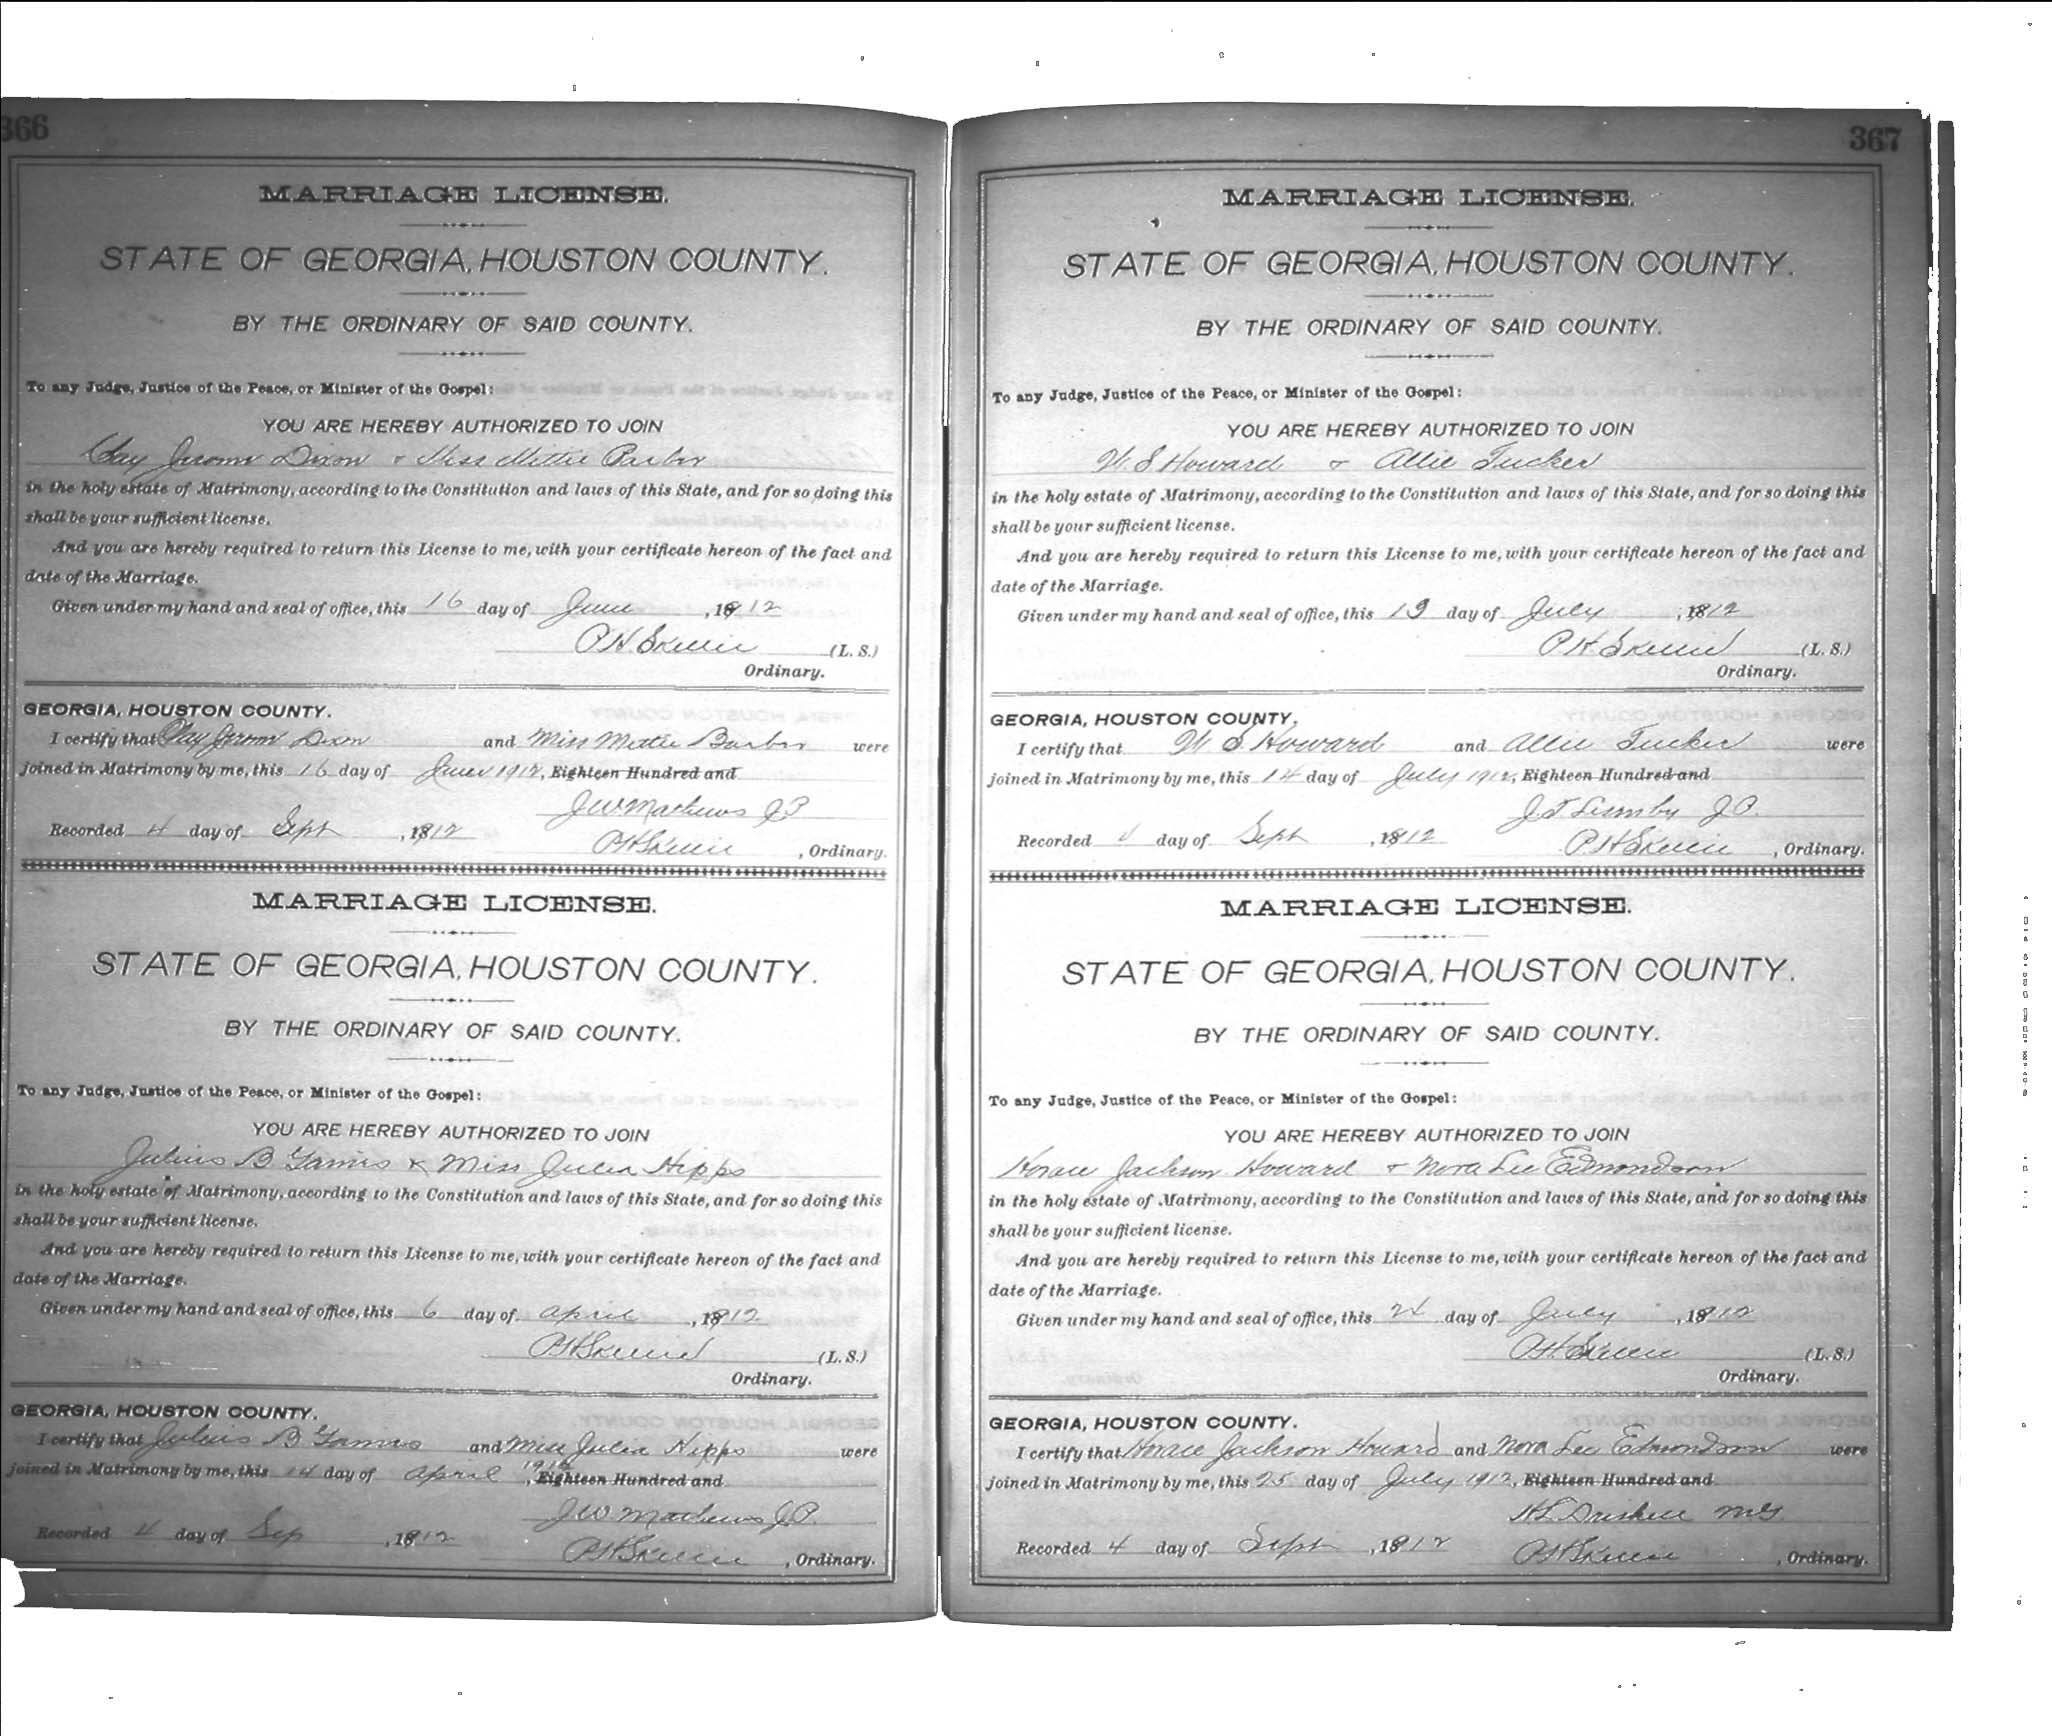 366
MARRIAGE LICENSE.
STATE OF GEORGIA, HOUSTON COUNTY.
BY THE ORDINARY OF SAID COUNTY.
To any Judge, Justice of the Peace, or Minister of the Gospel:
YOU ARE HEREBY AUTHORIZED TO JOIN
Clay Jerome Dixon & Miss Mittie Barbor
in the holy estate of Matrimony, according to the Constitution and laws of this State, and for so doing this
shall be your sufficient license.
And you are hereby required to return this License to me, with your certificate hereon of the fact and
date of the Marriage.
Given under my hand and seal of office, this 16 day of June , 1912
(L. S.)
Ordinary.
GEORGIA, HOUSTON COUNTY.
I certify that Clay Jerom Dixon and Miss Mittie Barbor were
joined in Matrimony by me, this 16 day of June 1912, Eighteen Hundred and
J W Mathews J P
Recorded 4 day of Sept , 1912
, Ordinary.
MARRIAGE LICENSE.
STATE OF GEORGIA, HOUSTON COUNTY.
BY THE ORDINARY OF SAID COUNTY.
To any Judge, Justice of the Peace, or Minister of the Gospel:
YOU ARE HEREBY AUTHORIZED TO JOIN
Julius B & Miss Julia Hipps
in the holy estate of Matrimony, according to the Constitution and laws of this State, and for so doing this
shall be your sufficient license.
And you are hereby required to return this License to me, with your certificate hereon of the fact and
date of the Marriage.
Given under my hand and seal of office, this 6 day of April , 1912
(L. S.)
Ordinary.
GEORGIA, HOUSTON COUNTY.
I certify that Julius B and Miss Julia Hipps were
joined in Matrimony by me, this 14 day of April 1912, Eighteen Hundred and
J W Mathews J P.
Recorded 4 day of Sep , 1912
, Ordinary.
367
MARRIAGE LICENSE.
STATE OF GEORGIA, HOUSTON COUNTY.
BY THE ORDINARY OF SAID COUNTY.
To any Judge, Justice of the Peace, or Minister of the Gospel:
YOU ARE HEREBY AUTHORIZED TO JOIN
W. S Howard & Allie Tucker
in the holy estate of Matrimony, according to the Constitution and laws of this State, and for so doing this
shall be your sufficient license.
And you are hereby required to return this License to me, with your certificate hereon of the fact and
date of the Marriage.
Given under my hand and seal of office, this 13 day of July , 1912
(L. S.)
Ordinary.
GEORGIA, HOUSTON COUNTY.
I certify that W S. Howard and Allie Tucker were
joined in Matrimony by me, this 14 day of July 1912, Eighteen Hundred and
J. T J P.
Recorded 4 day of Sept , 1912
, Ordinary.
MARRIAGE LICENSE.
STATE OF GEORGIA, HOUSTON COUNTY.
BY THE ORDINARY OF SAID COUNTY.
To any Judge, Justice of the Peace, or Minister of the Gospel:
YOU ARE HEREBY AUTHORIZED TO JOIN
Horace Jackson Howard & Nora Lee Edmondson
in the holy estate of Matrimony, according to the Constitution and laws of this State, and for so doing this
shall be your sufficient license.
And you are hereby required to return this License to me, with your certificate hereon of the fact and
date of the Marriage.
Given under my hand and seal of office, this 24 day of July , 1912
(L. S.)
Ordinary.
GEORGIA, HOUSTON COUNTY.
I certify that Horace Jackson Howard and Nora Lee Edmondson were
joined in Matrimony by me, this 25 day of July 1912, Eighteen Hundred and
H L Driskell M G.
Recorded 4 day of Sept , 1912
, Ordinary.